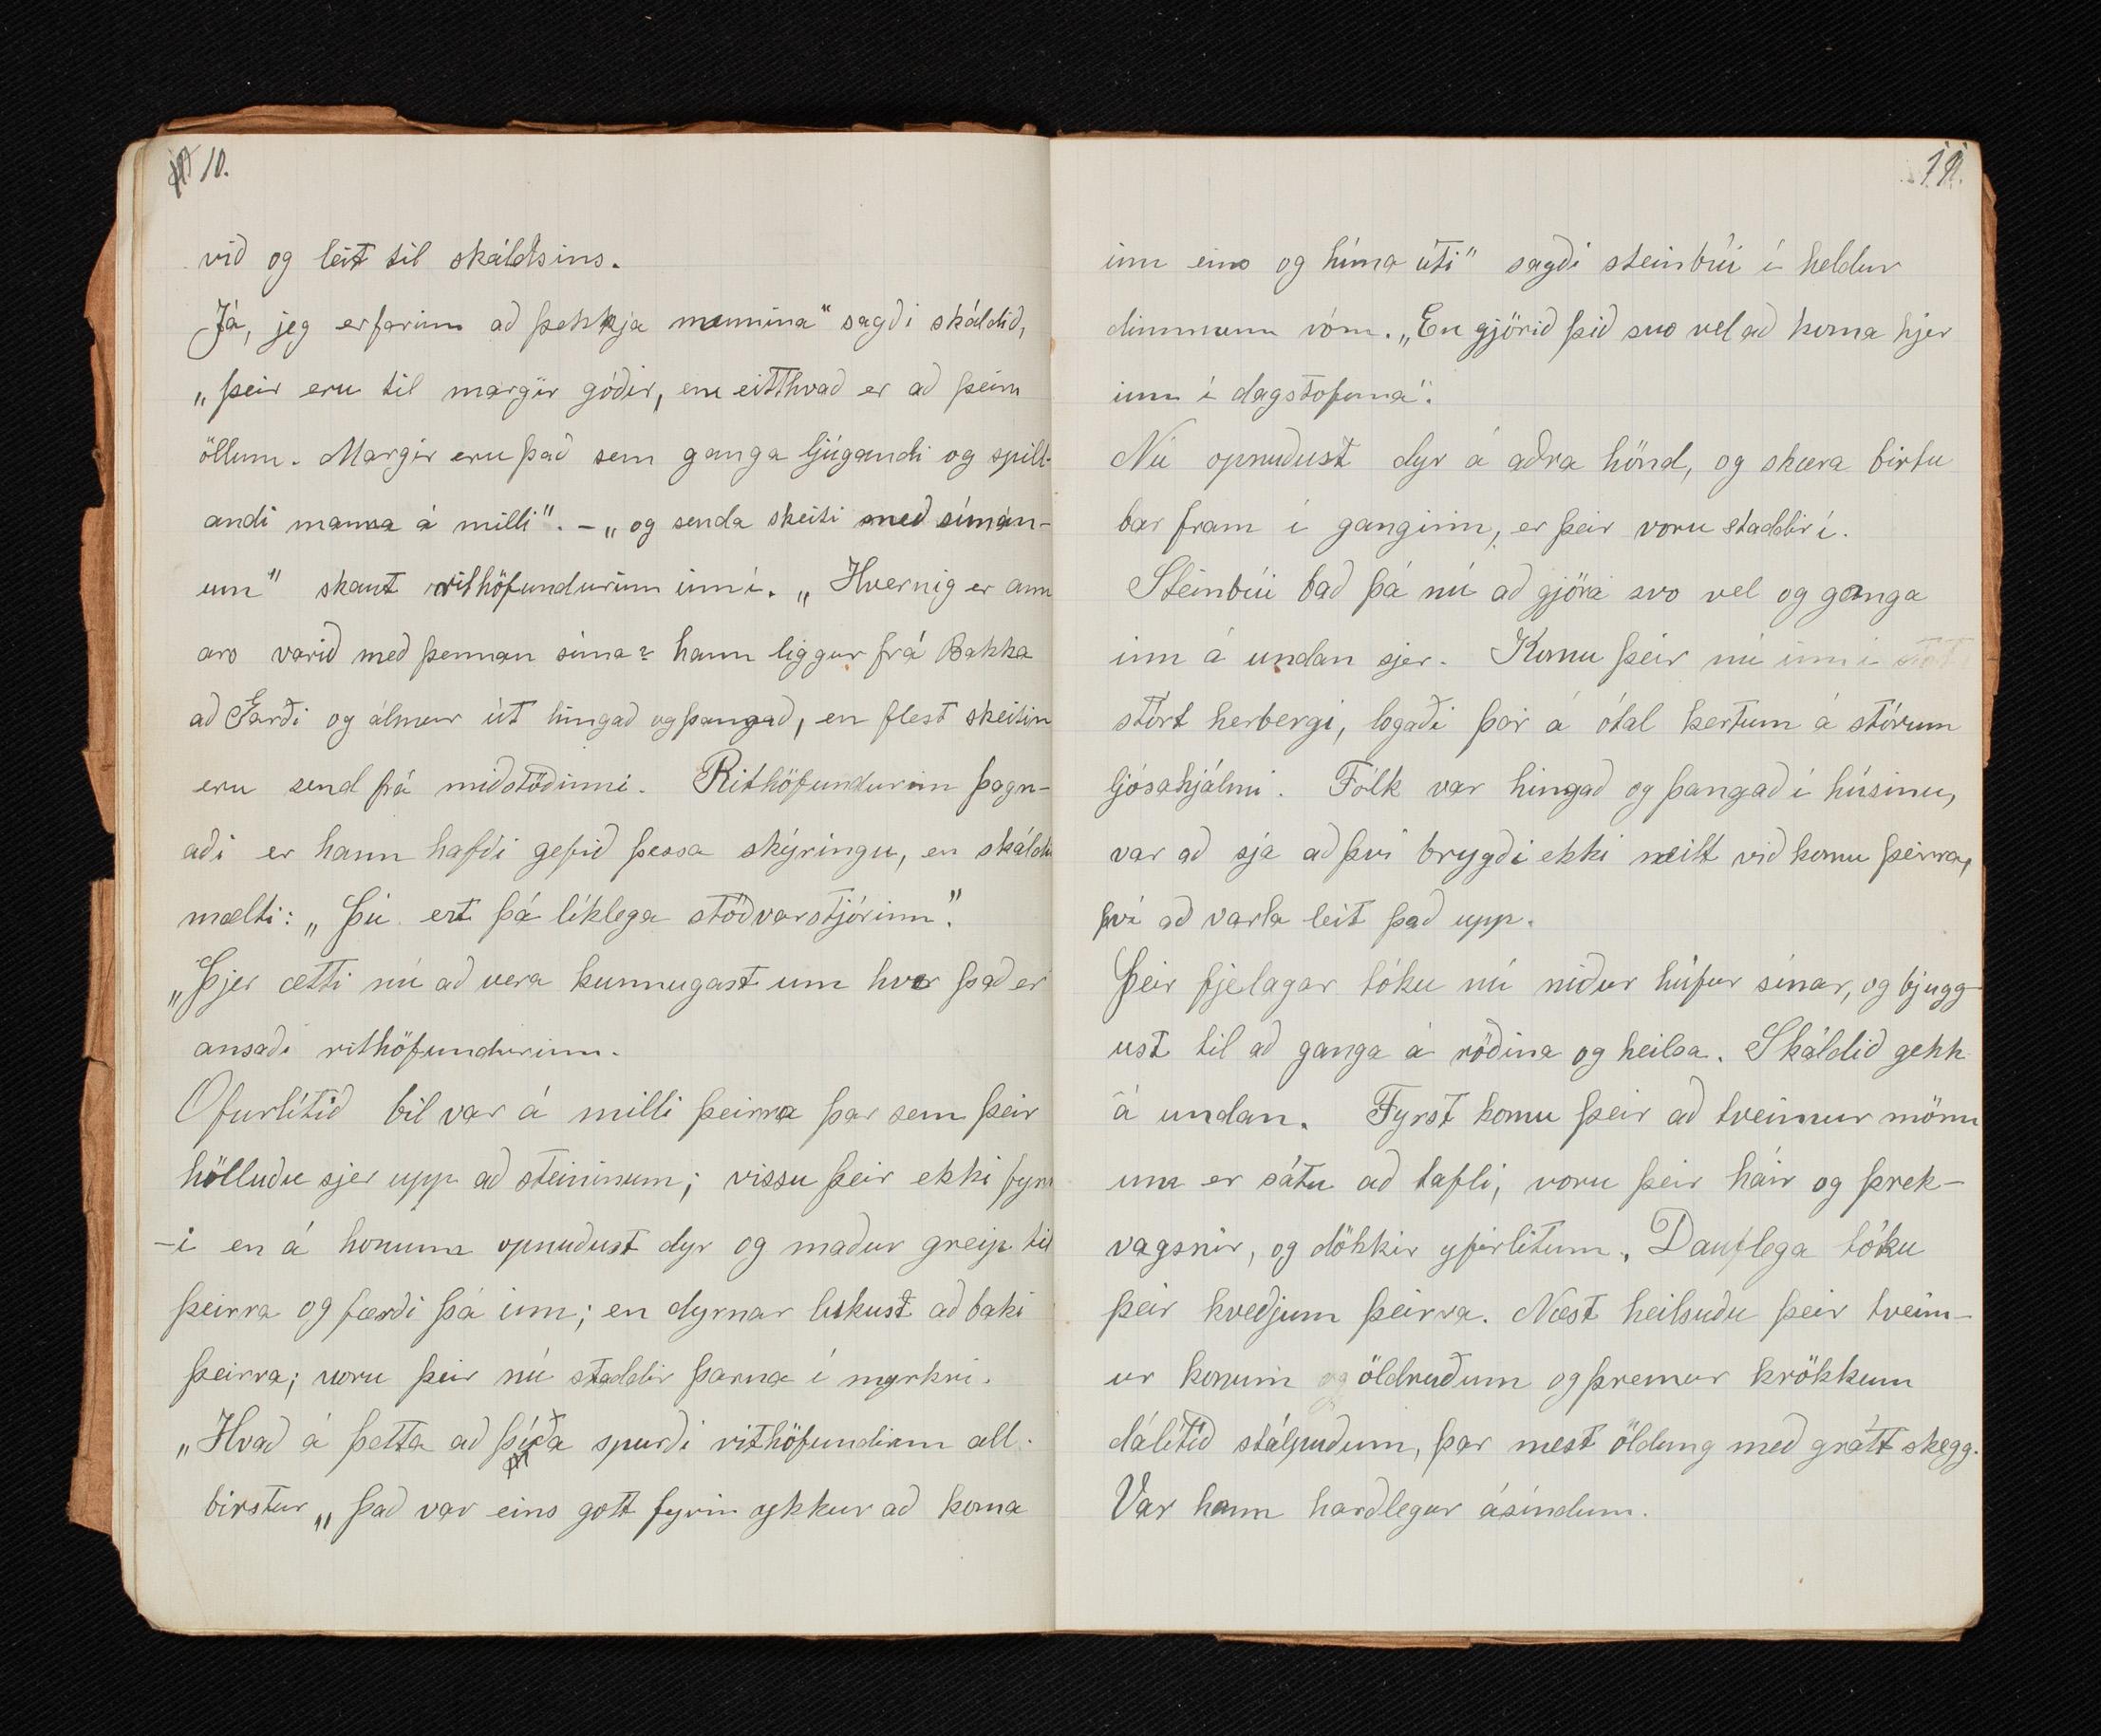 10.
við og leit til skáldsins.
Já, jeg er farinn að þekkja mennina" sagði skáldið,
„þeir eru til margir góðir, en eitthvað er að þeim
öllum. Margir eru það sem ganga ljúgandi og spill-
andi manna á milli". – „og senda skeiti með símán-
um" skaut rithöfundurinn inní. „Hvernig er ann
ars varið með þennan síma? hann liggur frá Bakka
að Garði og álmur út hingað og þangað, en flest skeitin
eru send frá miðstöðinni. Rithöfundurinn þagn-
aði er hann hafði gefið þessa skýringu, en skáldið
mælti: „Þú ert þá líklega stöðvarstjórinn".
„Þjer ætti nú að vera kunnugast um hver það er
ansaði rithöfundurinn.
Ofurlítið bil var á milli þeirra þar sem þeir
hölluðu sjer upp að steininum; vissu þeir ekki fyrr
-i en á honum opnuðust dyr og maður greip til
þeirra og færði þá inn; en dyrnar lukust að baki
þeirra; voru þeir nú staddir þarna í myrkri.
„Hvað á þetta að þíða spurði rithöfundinn all-
birstur „það var eins gott fyrir ykkur að koma
11.
inn eins og híma úti" sagði steinbúi í heldur
dimmum róm. „En gjörið þið svo vel að koma hjer
inn í dagstofuna".
Nú opnuðust dyr á aðra hönd, og skæra birtu
bar fram í ganginn, er þeir voru staddir í.
Steinbúi bað þá nú að gjöra svo vel og ganga
inn á undan sjer. Komu þeir nú inn í
stórt herbergi, logaði þar á ótal kertum á stórum
ljósahjálmi. Fólk var hingað og þangað í húsinu,
var að sjá að því brygði ekki neitt við komu þeirra,
því að varla leit það upp.
Þeir fjelagar tóku nú niður húfur sínar, og bjugg-
ust til að ganga á röðina og heilsa. Skáldið gekk
á undan. Fyrst komu þeir að tveimur mönn
um er sátu að tafli, voru þeir háir og þrek-
vagsnir, og dökkir yfirlitum. Dauflega tóku
þeir kveðjum þeirra. Næst heilsuðu þeir tveim-
ur konum öldruðum og þremur krökkum
dálítið stálpuðum, þar næst öldung með grátt skegg.
Var hann harðlegur ásíndum.